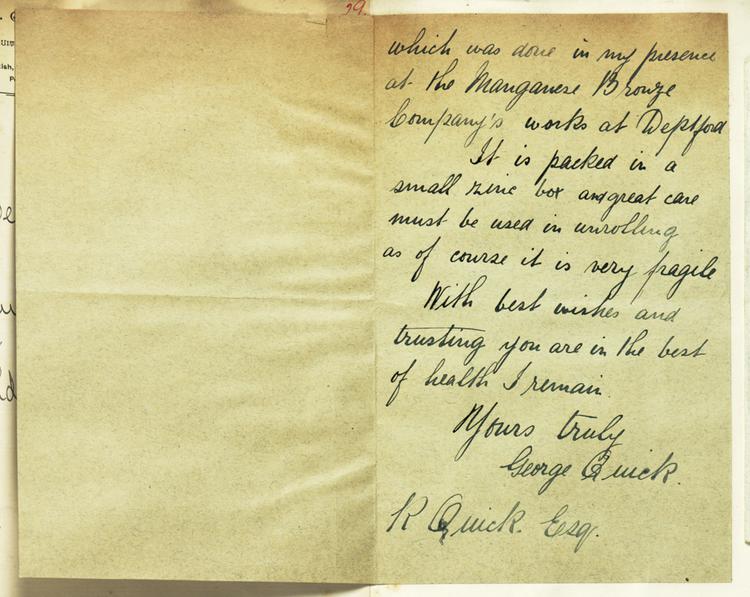 39.
which was done in my presence
at the Manganese Bronze
Company's works at Deptford
It is packed in a
small zinc box and great care
must be used in unrolling
as of course it is very fragile
With best wishes and
trusting you are in the best
of health I remain
Yours truly
George Quick.
K Quick. Esq.